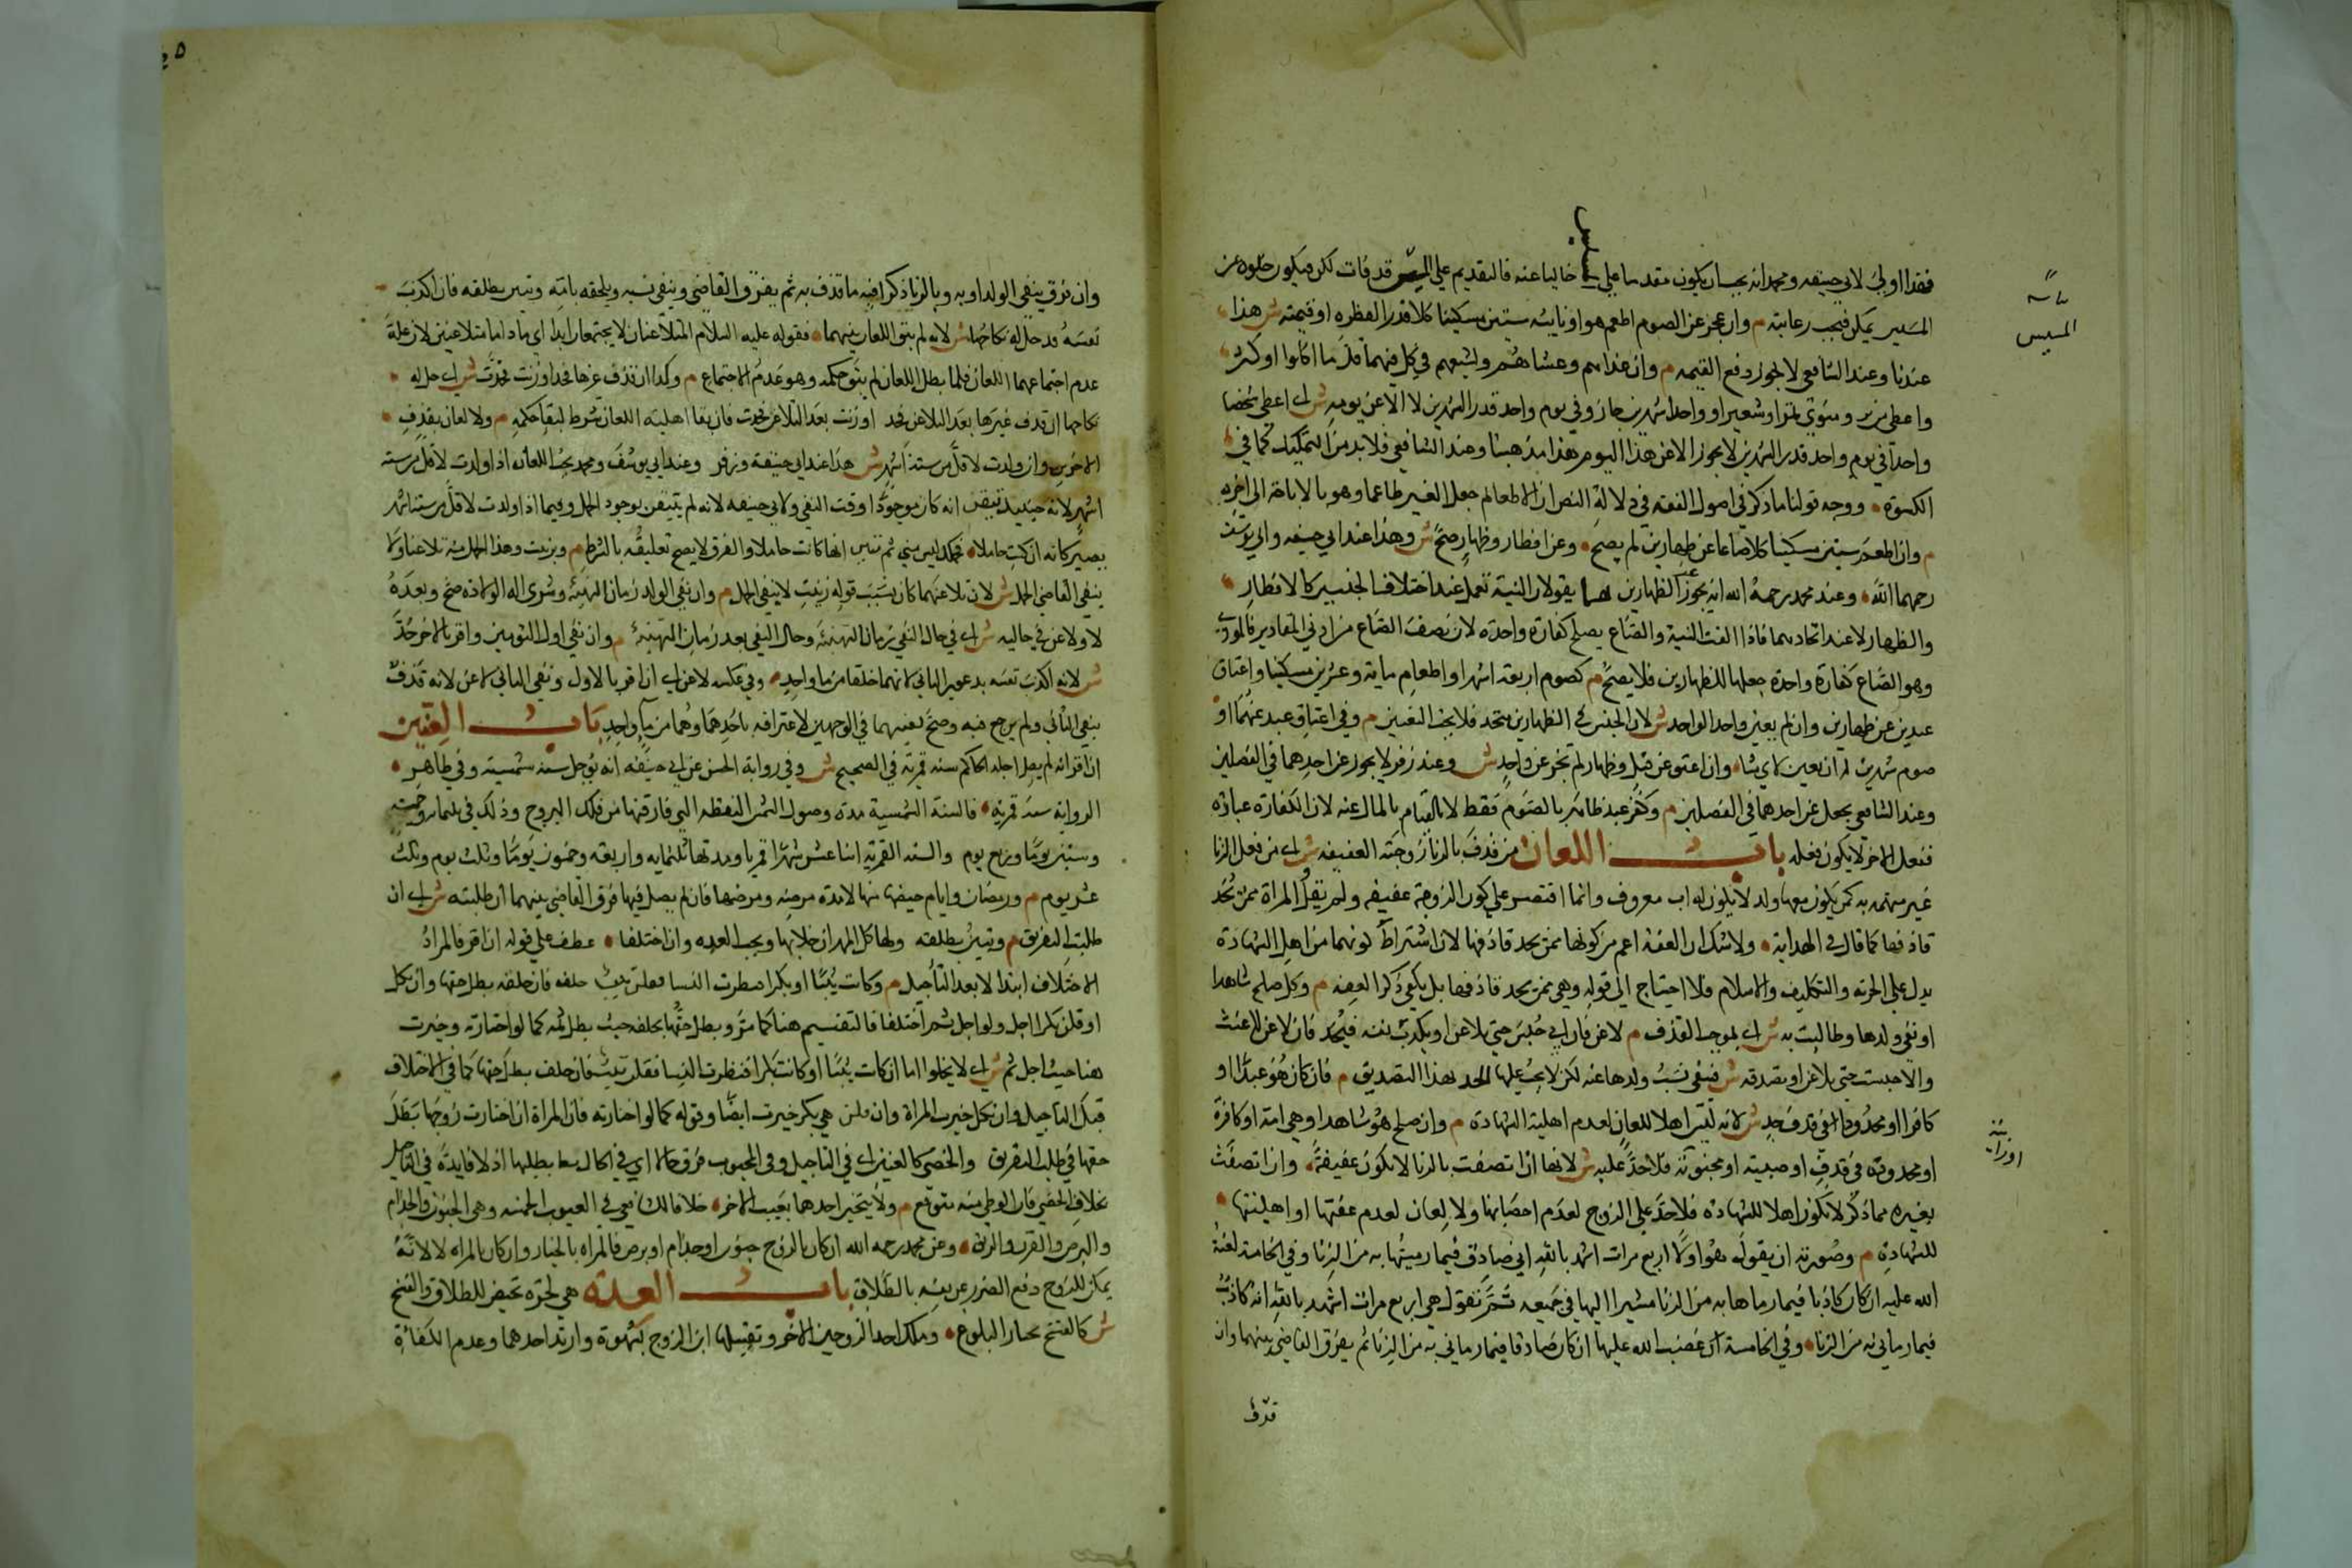 فقد اولي لابي حنيفه ومحمد انه يجب ان يكون مقدما علي المسيس خاليا عنه فالتقديم علي المسيس قد فات لكن فيكون خلوه عن
المسيس يمكن فيجب رعايته م وان عجز عن الصوم اطعم هو او نايبه ستين مسكينا كلا قدر الفطره او قيمته ش هذا
عندنا وعند الشافعي لا يجوز دفع القيمه م وان غداهم وعشاهم واشبعهم في كل منهما قل ما اكلوا او كثر
واعطي من بر ومنوي تمر او شعير او واحدا شهرين جاز وفي يوم واحد قدر الشهرين لا الا عن يومه ش اي اعطي شخصا
واحدا في يوم واحد قدر الشهرين لا يجوز الا عن هذا اليوم هذا مذهبنا وعند الشافعي فلا بد من التمليك كما في
الكسوه ووجه قولنا ما ذكر في اصول الفقه في دلالة النص ان الاطعام جعل الغير طاعما وهو بالاباحة الي اخره
م وان اطعم ستين مسكينا كلا صاعا عن ظهارين لم يصح وعن افطار وظهار صح ش وهذا عند ابي حنيفه وابي يوسف
رحمهما الله وعند محمد رحمه الله انه يجوز عن الظهارين لهما يقولان النية تعمل عند اختلاف الجنسين كالافطار
والظهار لا عند اتحادهما فاذا الغت النية والصاع يصلح كفارة واحدة لان نصف الصاع من ادني المقادير فالمودي
وهو الصاع كفارة واحدة جعلها للظهارين فلا يصح م كصوم اربعة اشهر او اطعام ماية وعشرين مسكينا واعتاق
عبدين عن ظهارين وان لم يعين واحدا لواحد ش لان الجنس في الظهارين متحد فلا يجب التعيين م وفي اعتاق عبد عنهما او
صوم شهرين له ان يعين لاي شا وان اعتق عن قتل وظهار لم يجز عن واحد ش وعند زفر لا يجوز عن احدهما في الفصلين
وعند الشافعي يجعل عن احدهما في الفصلين م وكفر عبد ظاهر بالصوم فقط لا بالمال عنه لان الكفارة عبادة
ففعل الاخر لا يكون فعله باب اللعان من قذف بالزنا زوجته العفيفه ش اي من فعل الزنا
غير متهمه به كمن يكون معها ولد لا يكون له اب معروف وانما اقتصر علي كون الزوجة عفيفه ولم يقل المراة ممن يحد
قاذفها كما قال في الهداية ولا شك ان العفة اعم من كونها ممن يحد قاذفها لان اشتراط كونهما من اهل الشهادة
يدل علي الحرية والتكليف والاسلام فلا احتياج الي قوله وهي ممن يحد قاذفها بل يكفي ذكر العفه م وكل صلح شاهدا
او نفي ولدها وطالبت به ش اي بموجب القذف م لاعن فان ابي حبس حتي يلاعن او يكذب نفسه فيحد فان لاعن لاعنت
والا حبست حتي تلاعن او تصدقه ش فينفي نسب ولدها عنه لكن لا يجب عليها الحد بهذا التصديق م فان كان هو عبدا او
كافرا او محدودا في قذف حد ش لانه ليس اهلا للعان لعدم اهلية الشهادة م وان صلح هو شاهدا وهي امة او كافرة
او محدودة في قذف او صبية او مجنونة فلا حد عليه ش لانها اذا اتصفت بالزنا لا تكون عفيفة وان اتصفت
بغيره مما ذكر لا تكون اهلا للشهادة فلا حد علي الزوج لعدم احصانها ولا لعان لعدم عفتها او اهليتها
للشهادة م وصورته ان يقول هو اولا اربع مرات اشهد بالله اني صادق فيما رميتها به من الزنا وفي الخامسة لعنة
الله عليه ان كان كاذبا فيما رماها به من الزنا مشيرا اليها في جميعه ثم تقول هي اربع مرات اشهد بالله انه كاذب
فيما رماني به من الزنا وفي الخامسة ان غضب الله عليها ان كان صادقا فيما رماني به من الزنا ثم يفرق القاضي بينهما وان
قذف
المسيس
وان قذف ينفي الولد او به وبالزنا ذكرا فيه ما قذف به ثم يفرق القاضي وينفي نسبه ويلحقه بامه وتبين بطلقه فان اكذب
نفسه حد وحل له نكاحها ش لانه لم يبق اللعان بينهما فقوله عليه السلام المتلاعنان لا يجتمعان ابدا اي ما داما متلاعنين لان علة
عدم اجتماعهما اللعان فلما بطل اللعان لم يبق حكمه وهو عدم الاجتماع م وكذا ان قذف غيرها فحد او زنت فحدت ش اي حل له
نكاحها ان قذف غيرها بعد التلاعن فحد او زنت بعد التلاعن فحدت فان بقا اهلية اللعان شرط لبقا حكمه م ولا لعان بقذف
الاخرس وان ولدت لاقل من ستة اشهر ش هذا عند ابي حنيفة وزفر وعند ابي يوسف ومحمد يجب اللعان اذا ولدت لاقل من ستة
اشهر لانه حينيذ تيقن انه كان موجودا وقت النفي ولابي حنيفه لانه لم يتيقن بوجود الحمل وفيما اذا ولدت لاقل من ستة اشهر
يصير كانه ان كنت حاملا فحملك ليس مني ثم تبين انها كانت حاملا والقذف لا يصح تعليقه بالشرط م وبزنيت وهذا الحمل منه تلاعنا ولا
ينفي القاضي الحمل ش لان تلاعنهما كان بسبب قوله زنيت لا بنفي الحمل م وان نفي الولد زمان التهنئة وشري الة الولادة صح وبعده
لا ولاعن في حاليه ش اي في حال النفي زمان التهنئة وحال النفي بعد زمان التهنئة م وان نفي اول التوامين واقر بالاخر حد
ش لانه اكذب نفسه بدعوي الثاني لانهما خلقا من ما واحد وفي عكسه لاعن اي ان اقر بالاول ونفي الثاني لاعن لانه قذف
بنفي الثاني ولم يرجع عنه وصح نسبهما في الوجهين لاعترافه باحدهما وهما من ماء واحد باب العنين
ان اقر انه لم يصل اجله الحاكم سنة قمرية في الصحيح ش وفي رواية الحسن عن ابي حنيفه انه يؤجل سنة شمسية وفي ظاهر
الرواية سنة قمرية فالسنة الشمسية مدة وصول الشمس النقطه التي فارقتها من فلك البروج وذلك في ثلثماية وخمسة
وستين يوما وربع يوم والسنه القمرية اثنا عشر شهرا قمريا ومدتها ثلثمايه واربعه وخمسون يوما وثلث يوم وثلث
عشر يوم م ورمضان وايام حيضها منها لا مدة مرضه ومرضها فان لم يصل فيها فرق القاضي بينهما ان طلبته ش اي ان
طلبت التفريق م وتبين بطلقه ولها كل المهر ان خلا بها ويجب العده وان اختلفا عطف علي قوله ان اقر فالمراد
الاختلاف ابتدا لا بعد التاجيل م وكانت ثيبا او بكرا فنظرت النسا فقلن ثيب حلفه فان حلف بطل حقها وان نكل
او قلن بكر اجل ولو اجل ثم اختلفا فالتقسيم هنا كما مر وبطل حقها بحلفه حيث بطل ثمه كما لو اختارته وخيرت
هنا حيث اجل ثم ش اي لا يخلو اما ان كانت ثيبا او كانت بكرا فنظرت النسا فقلن ثيب فان حلف بطل حقها كما في الاختلاف
قبل التاجيل وان نكل خيرت المراة وان قلن هي بكر خيرت ايضا وقوله كما لو اختارته فان المراة ان اختارت زوجها بطل
حقها في طلب التفريق والخصي كالعنين اي في التاجيل وفي المجبوب فرق حالا اي في الحال بطلبها اذ لا فايدة في التاجيل
بخلاف الخصي فان الوطي منه متوقع م ولا يتخير احدهما بعيب الاخر خلافا للشافعي في العيوب الخمسه وهي الجنون والجذام
والبرص والقرن والرتق وعن محمد رحمه الله ان كان بالزوج جنون او جذام او برص فالمراه بالخيار وان كان بالمراه لا لانه
يمكن للزوج دفع الضرر عن نفسه بالطلاق باب العدة هي لحرة تحيض للطلاق والفسخ
ش كالفسخ بخيار البلوغ وملك احد الزوجين الاخر وتقبيلها ابن الزوج بشهوة وارتداد احدهما وعدم الكفاءة